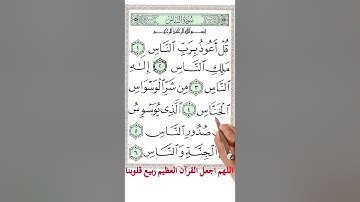 سُورَةُ النَّاسِ
بِسْمِ اللَّهِ الرَّحْمَٰنِ الرَّحِيمِ
قُلْ أَعُوذُ بِرَبِّ النَّاسِ ١
مَلِكِ النَّاسِ ٢ إِلَٰهِ
النَّاسِ ٣ مِن شَرِّ الْوَسْوَاسِ
الْخَنَّاسِ ٤ الَّذِي يُوَسْوِسُ
صُدُورِ النَّاسِ ٥
الْجِنَّةِ وَالنَّاسِ ٦
اللهم اجعل القرآن العظيم ربيع قلوبنا